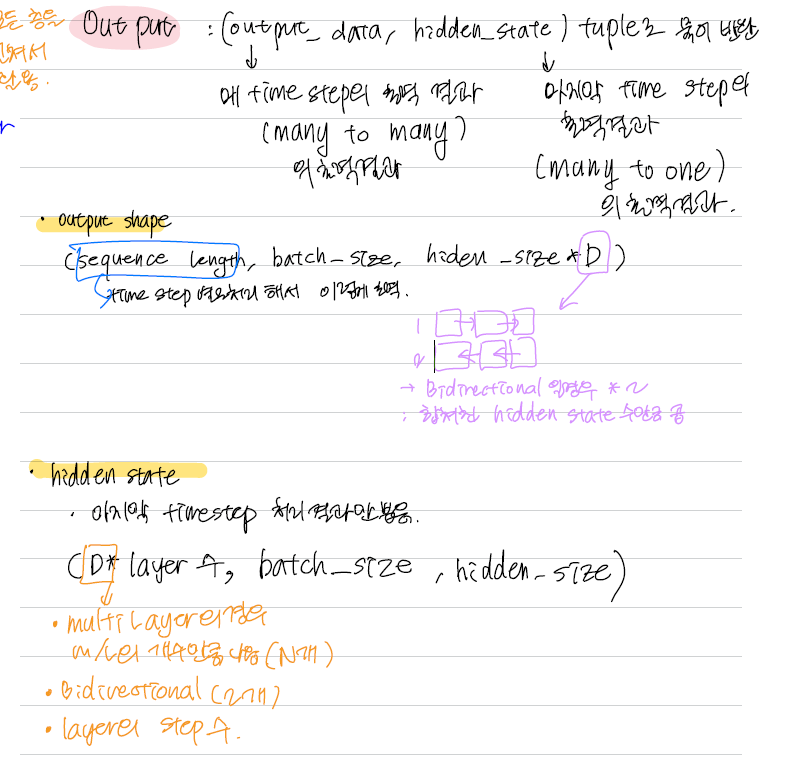 모든 층을
Output : (output_data, hidden_state) tuple로 묶어 반환
매 time step의 출력 결과
(many to many)
의 출력결과
마지막 time step의
출력결과
(many to one)
의 출력결과.
• output shape
(sequence length, batch_size, hiden_size * D)
time step 별로 처리 해서 이렇게 출력.
1
2
→ Bidirectional 일경우 * 2
: 합쳐진 hidden state 수만큼 곱
• hidden state
• 마지막 timestep 처리결과만 뽑음.
(D* layer 수, batch_size, hidden_size)
• multi Layer의 경우
m/L의 개수만큼 나옴 (N개)
• Bidirectional (2개)
• layer의 step 수.